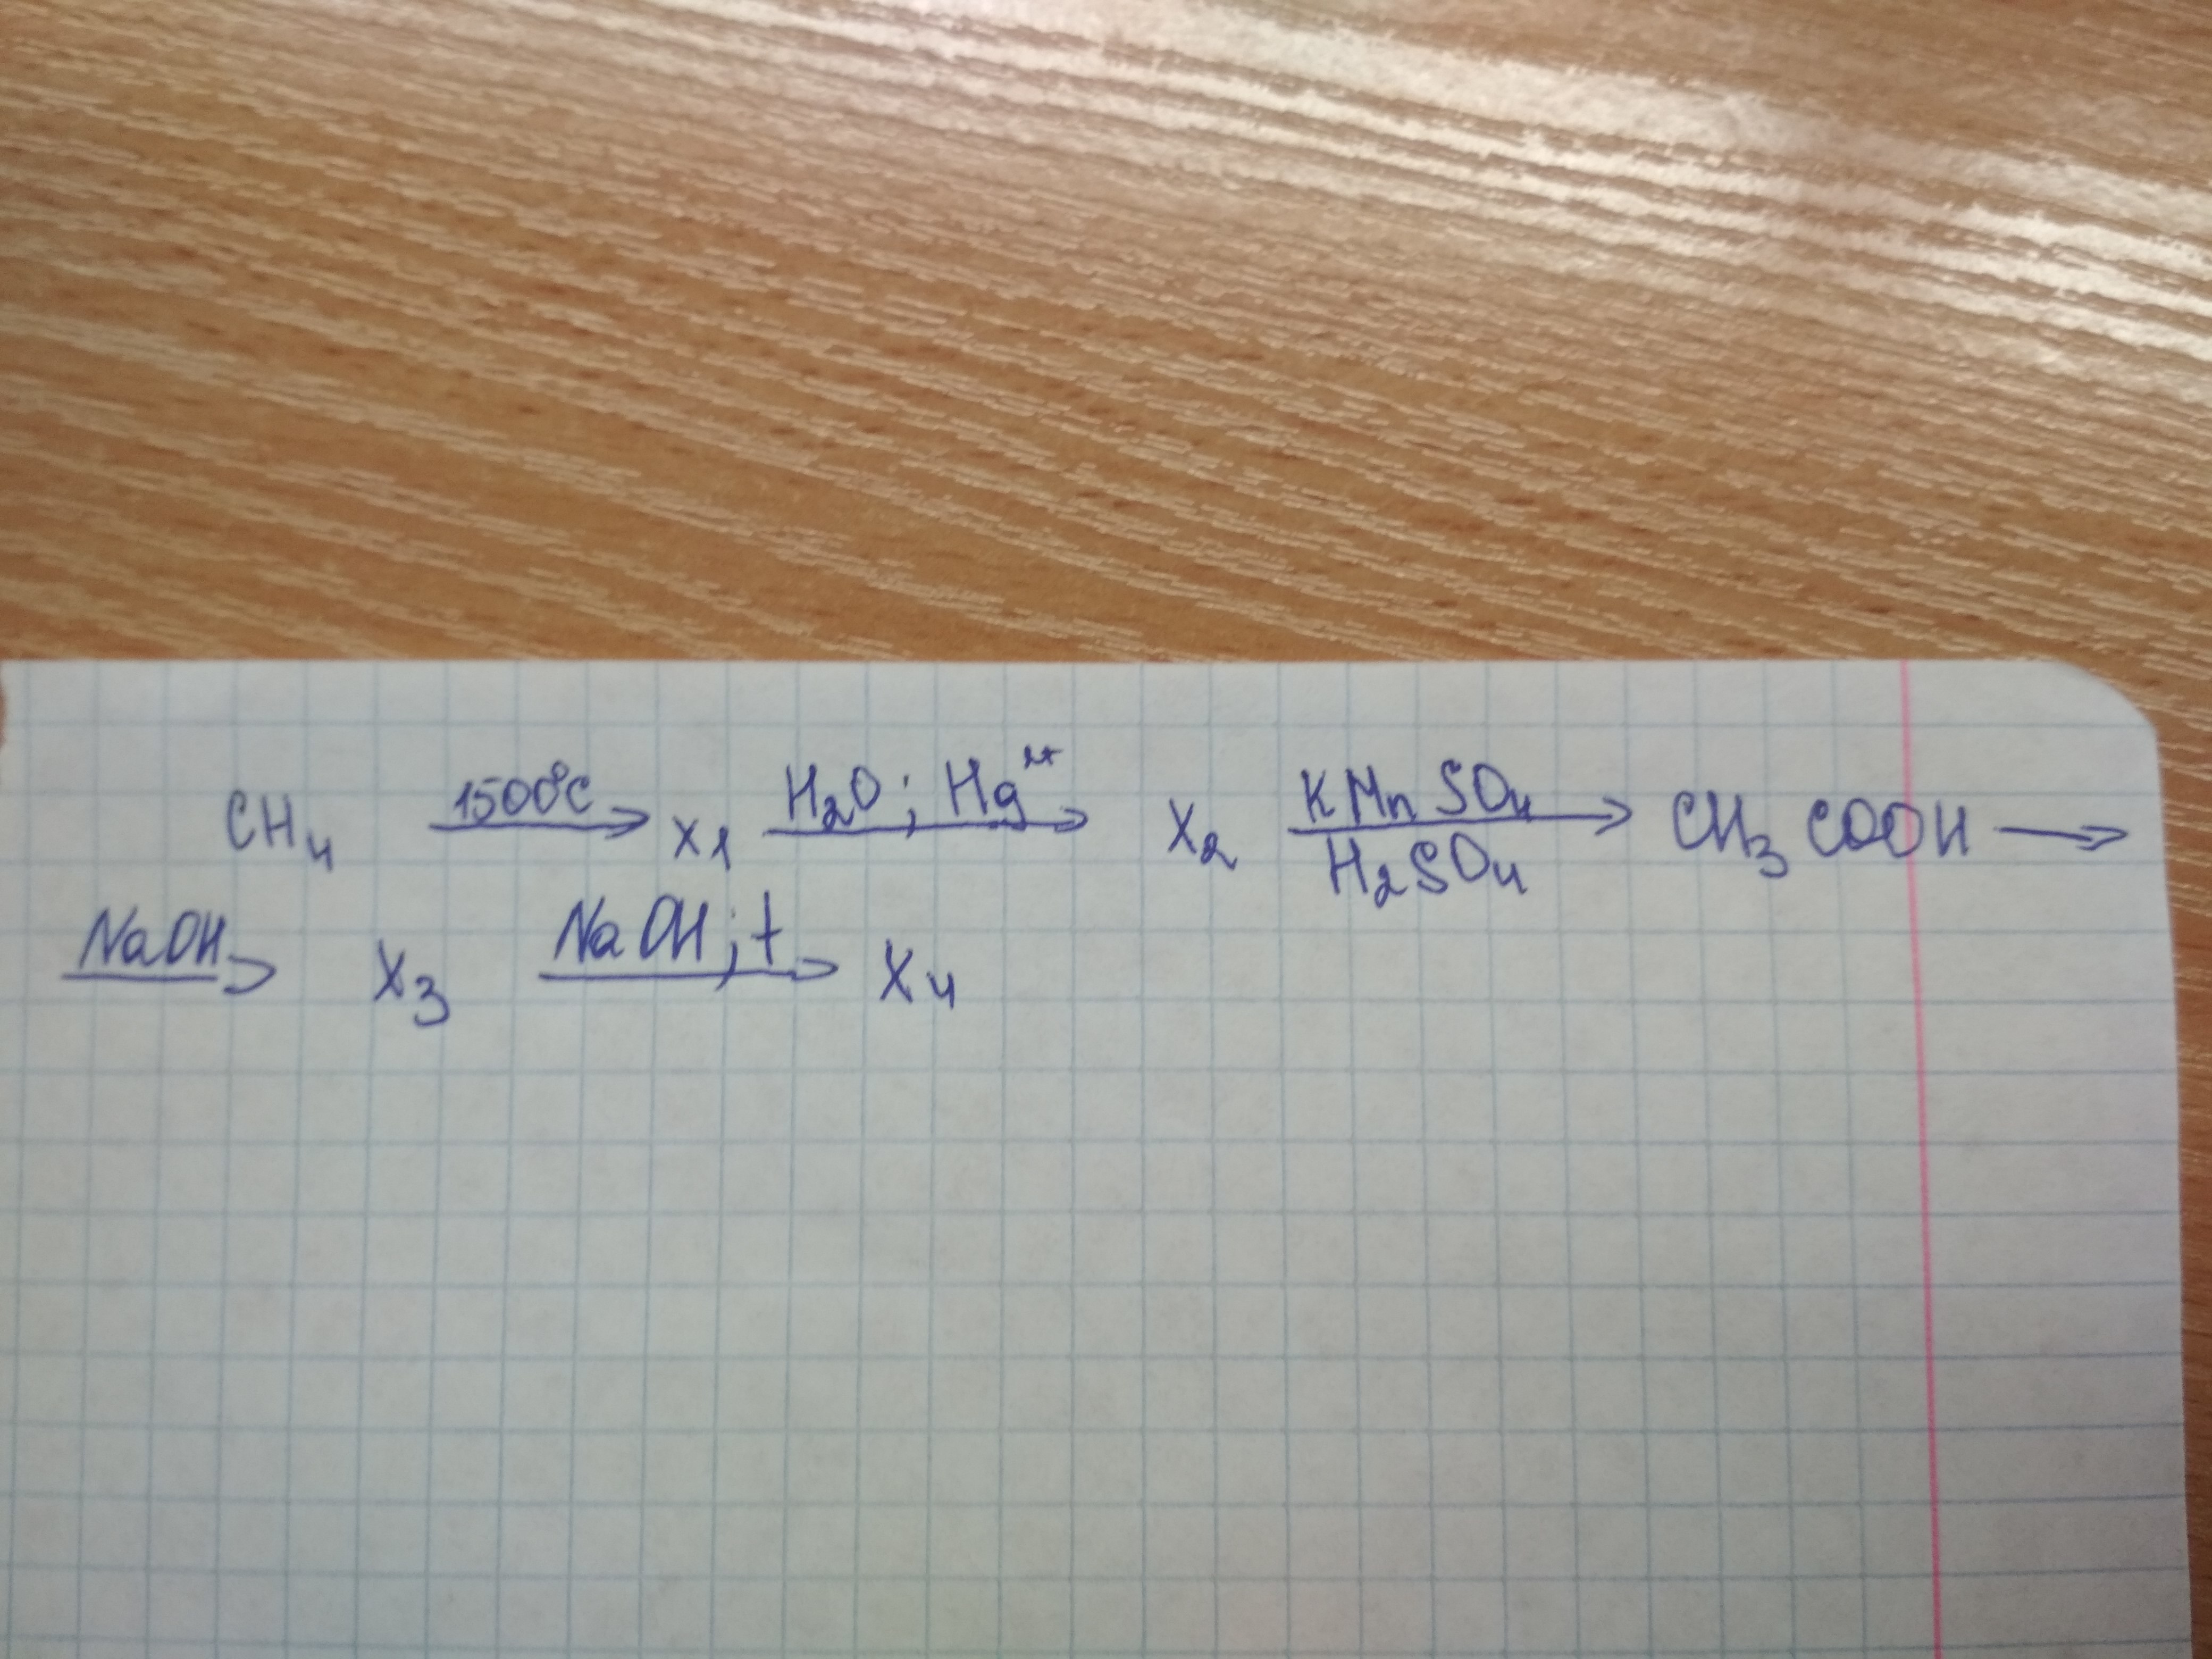 CH₄ 1500°C → X₁ H₂O; Hg²⁺ → X₂ KMnSO₄ / H₂SO₄ → CH₃COOH →
NaOH → X₃ NaOH; t → X₄